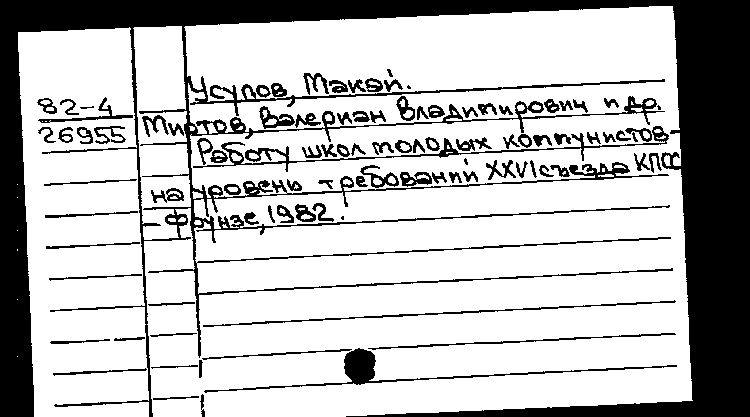 Усупов, Макай.
82-4
26955
Миртов, Валериан Владимирович и др.
Работу школ молодых коммунистов-
на уровень требований XXVI съезда КПСС
- Фрунзе, 1982.